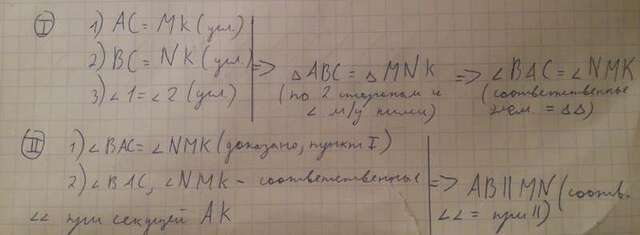 I
1) AC = MK (усл.)
2) BC = NK (усл.)
3) ∠1 = ∠2 (усл)
=> △ABC = △MNK
(по 2 сторонам и
∠ м/у ними)
=> ∠BAC = ∠NMK
(соответственные
элем. = △△)
II
1) ∠BAC = ∠NMK (доказано, пункт I)
2) ∠BAC, ∠NMK – соответственные
∠∠ при секущей AK
=> AB || MN (соотв.
∠∠ = при ||)